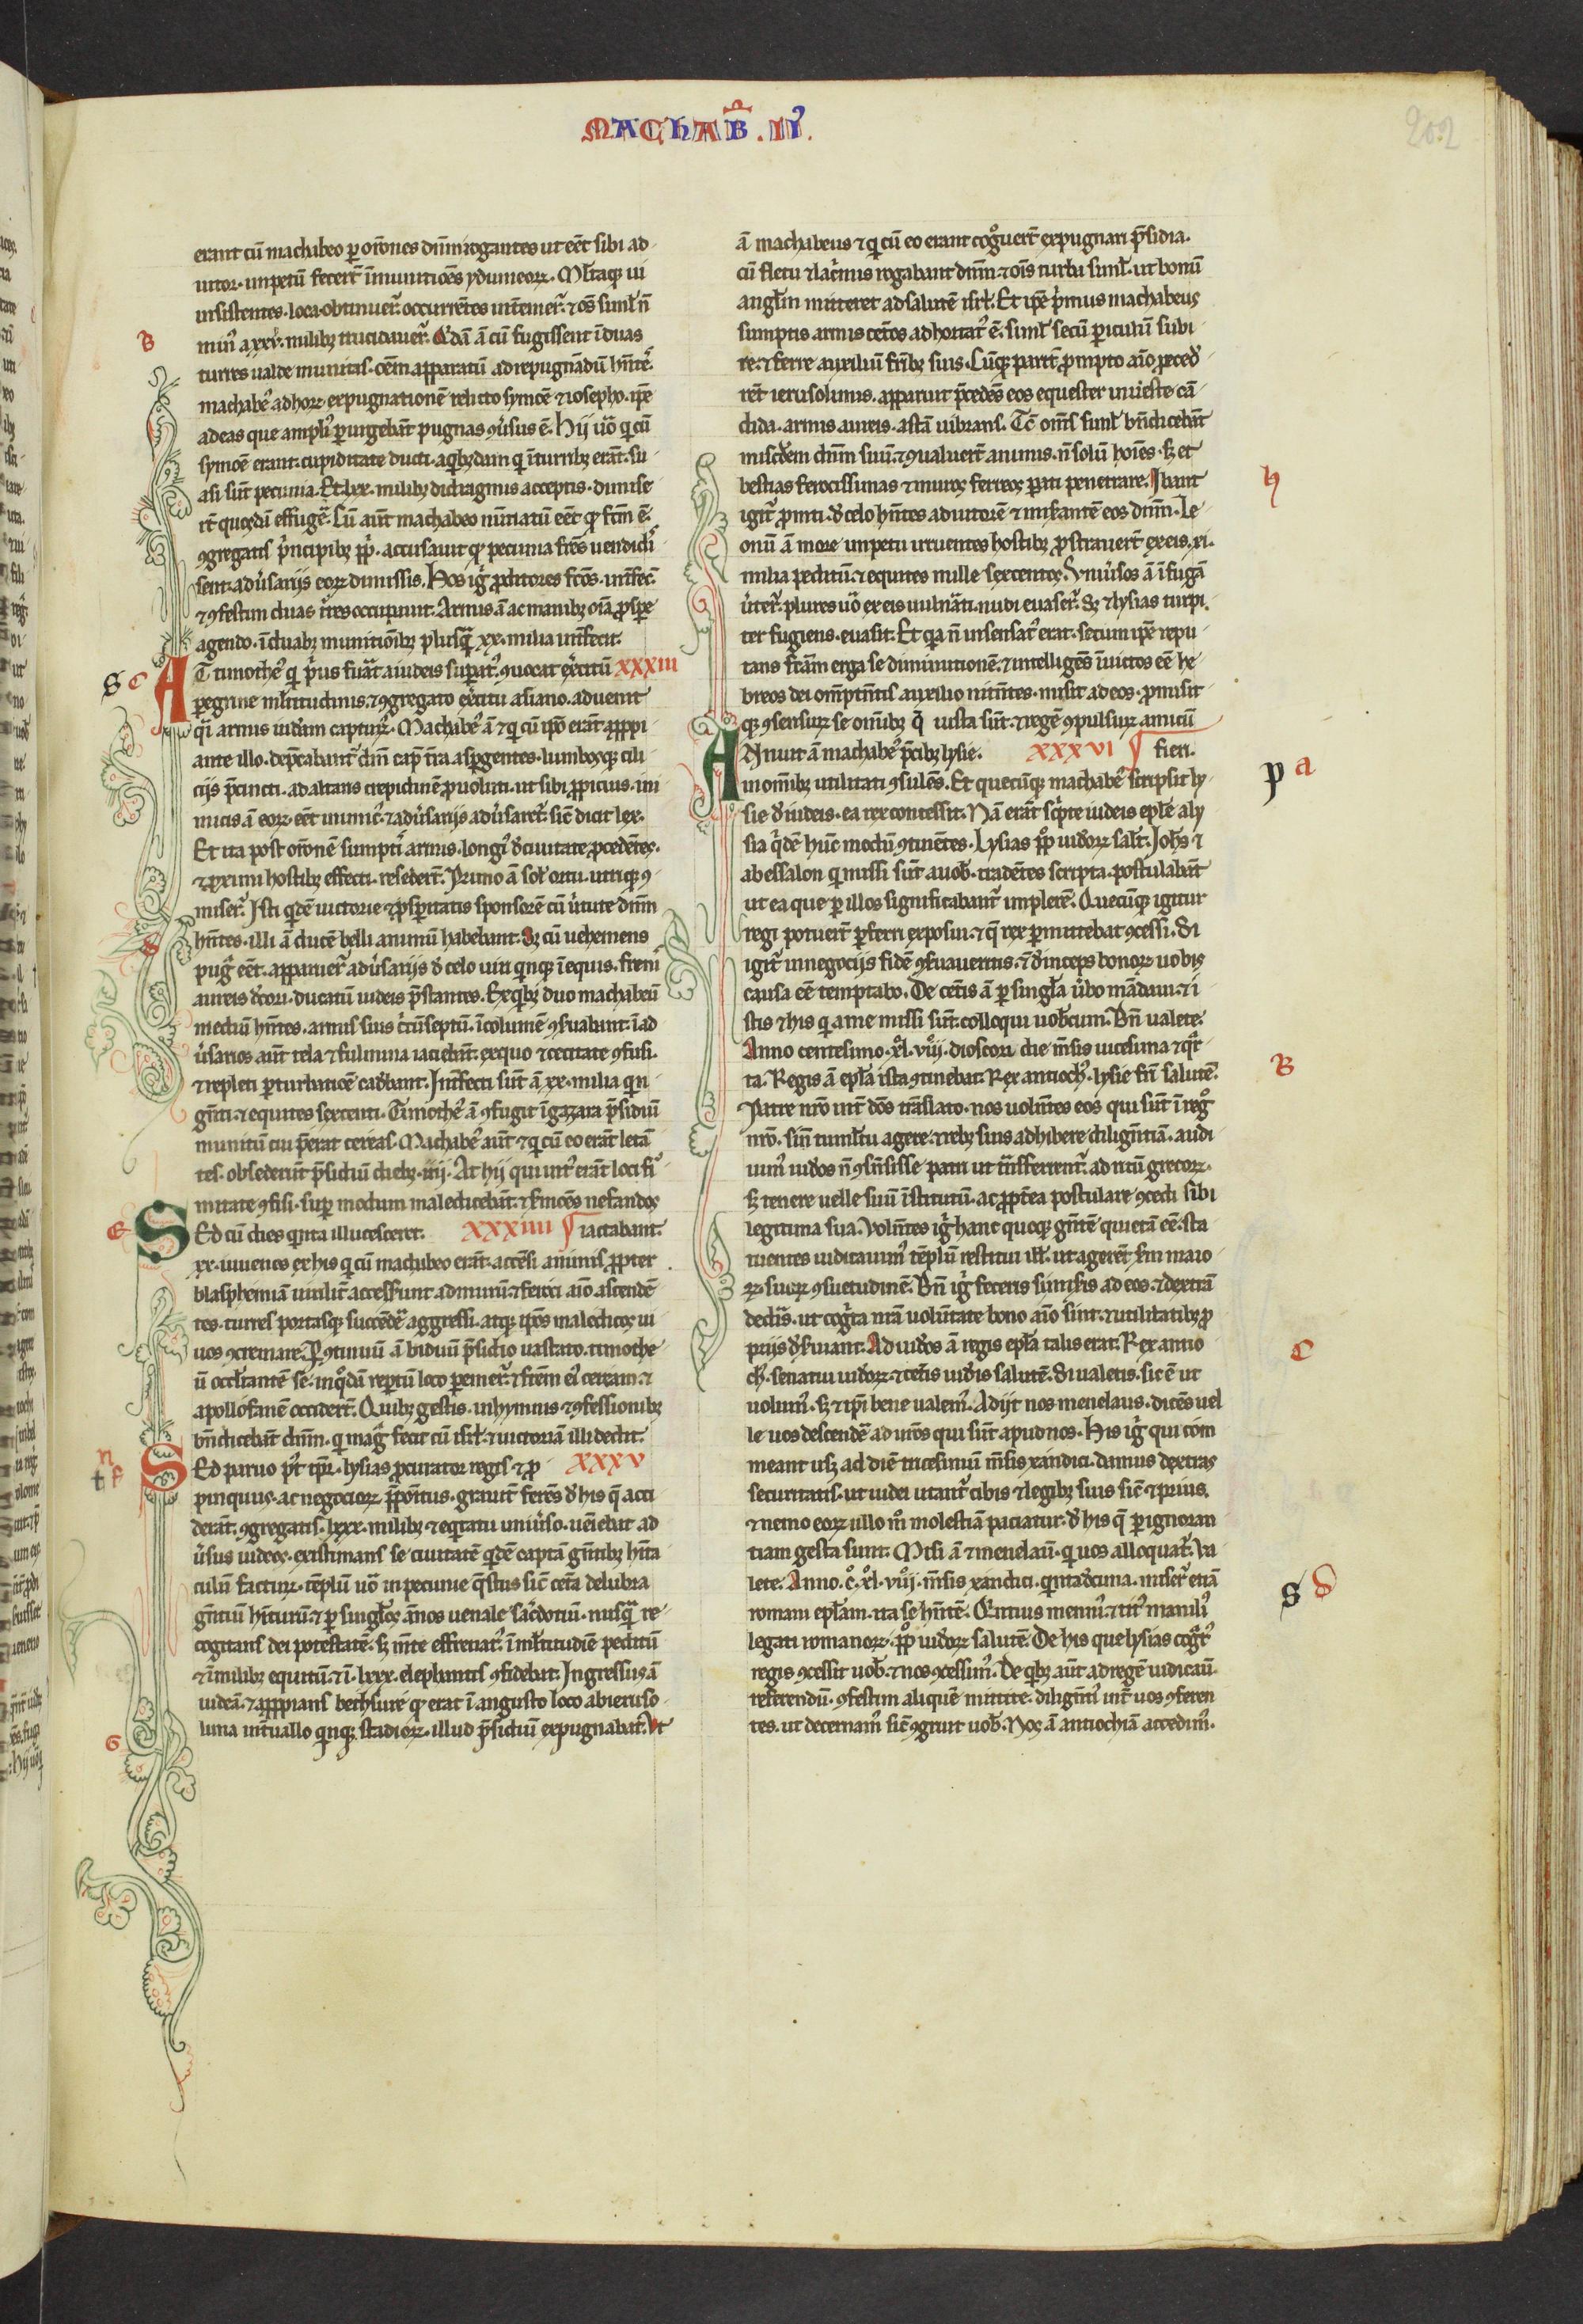 MACHAB̄. II᷒.
202
erant cū machabeo p̲ or̄ones dn̄m rogantes ut eēt sibi ad
iutor. impetū fecer̄t ī munitiōes ydumeoꝝ. Ml̄taqꝫ ui
insistentes. loca obtinuer̄. occurrētes int̄emer̄. ⁊ oēs siml̄ n̄
min᷒ a xxv. milibꝫ trucidauer̄. Qͥdā ā cū fugissent ī duas
B
turres ualde munitas. oēm apparatū ad repugnādū hn̄tes.
machabe᷒ ad hoꝝ expugnationē relicto symōe ⁊ iosepho. ip̄e
ad eas que ampli᷒ p̲urgebāt pugnas ꝯuersus ē. Hij uō qͥ cū
symōe erant. cupiditate ducti. a qͥbꝫdam qͥ ī turribꝫ erāt. su
asi sūt pecunia. Et lxx. milibꝫ didragmis acceptis. dimise
rt̄ quosdā effugē. Cū aūt machabeo nūtiatū eēt qꝫ fc̄m ē.
ꝯgregatis p̄ncipibꝫ pp̄li. accusauit qꝫ pecunia fr̄es uendidi
sent. aduersarijs eoꝝ dimissis. Hos igr̄ ꝓditores fc̄os. int̄fec̄.
⁊ ꝯfestim duas tr̄res occupauit. Armis ā ac manibꝫ oīa ꝓspe
agendo. ī duabꝫ munitiōibꝫ plusqͣ xx. milia int̄fecit.
S C
AT timothe᷒ qͥ p̄us fuāt a iudeis supat᷒. ꝯuocat ex̄citū XXXIII
pegrine ml̄titudinis. ⁊ ꝯgregato ex̄citu asiano. aduenit
qͣi armis iudeam captur᷒. Machabe᷒ ā ⁊ qͥ cū ip̄o erāt. appropi
ante illo. depcabant̄ dn̄m cap̄ tr̄a aspgentes. lumbosqꝫ cili
cijs p̄cincti. ad altaris crepidinē ꝓuoluti. ut sibi ꝓpicius. ini
micis ā eoꝝ. eēt inimic᷒. ⁊ aduersarijs aduersaret̄. sic̄ dicit lex.
Et ita post or̄onē sumptis armis. longi᷒ de ciuitate ꝓcedētes.
⁊ ꝓximi hostibꝫ effecti. resederūt. Primo ā sol᷒ ortu. utriqꝫ ꝯ
miser̄. Isti qͥdē uictorie ⁊ ꝓsp̲itatis sponsorē cū uertute dn̄m
hn̄tes. illi ā ducē belli animū habebant. Sꝫ cū uehemens
D
puḡ eēt. apparuer̄ aduersarijs de celo uiri qͥnqꝫ ī equis. frenis
aureis decori. ducatū iudeis p̄stantes. Ex qͥbꝫ duo machabeū
mediū hn̄tes. armis suis cͥrcūseptū. īcolumē ꝯseruabant. ī ad
uersarios aūt tela ⁊ fulmina iaciebāt. ex quo ⁊ cecitate ꝯfusi.
⁊ repleti p̲turbatiōe cadebant. Int̄fecti sūt ā xx. milia qͥn
gn̄ti. ⁊ equites sexcenti. Timothe᷒ ā ꝯfugit ī gazara p̄sidiū
munitū cui p̄erat cereas. Machabe᷒ aūt ⁊ qͥ cū eo erāt letā
tes. obsederūt p̄sidiū diebꝫ. iiij. At hij qui int᷒ erāt loci fir
mitate ꝯfisi. sup modum maledicebāt. ⁊ sermōes nefandos
E
SEd cū dies qͥnta illucesceret. XXXIIII ¶ iactabant.
xx. iuuenes ex his qͥ cū machabeo erāt. accēsi animis. ꝓpter
blasphemiā uirilit̄ accesserunt ad murū. ⁊ feroci aīo ascendē
tes. turres portasqꝫ succēdē aggressi. atqꝫ ip̄os maledicos ui
uos ꝯcremare. Per ꝯtinuū ā biduū p̄sidio uastato. timothe
ū occltantē se. in qͦdā reptū loco p̲emer̄. ⁊ fr̄em ei᷒ ceream. ⁊
apollofanē occider̄t. Quibꝫ gestis. in hymnis ⁊ ꝯfessionibꝫ
bn̄dicebāt dn̄m. qͥ magͣ fecit cū isrl̄. ⁊ uictoriā illi dedit.
n
t f
SEd paruo p᷒t tp̄r. lysias ꝓcurator regis ⁊ ꝓ XXXV
pinquus. ac negocioꝝ p̄positus. grauit̄ ferēs de his q̄ acci
derāt. ꝯgregatis. lxxx. milibꝫ ⁊ eqͥtatu uniuerso. ueniebat ad
uersus iudeos. existimans se ciuitatē qͥdē captā gn̄tibꝫ hita
culū facturꝝ. tēplū uō in pecunie q̄stus sic̄ cet̄a delubra
gn̄tiū hiturū. ⁊ p̲ singlos ānos uenale sac̄dotiū. nusqͣ re
cogitans dei potestatē. sꝫ mn̄te effrenat᷒. ī ml̄titudīe peditū
⁊ ī milibꝫ equitū. ⁊ ī. lxxx. elephantis ꝯfidebat. Ingressus ā
iudeā. ⁊ appropians bethsure qꝫ erat ī angusto loco ab ieruso
lima int̄uallo qͥnqꝫ stadioꝝ. illud p̄sidiū expugnabat. Vt
G
ā machabeus ⁊ qͥ cū eo erant cogͦuer̄t expugnari p̄sidia.
cū fletu ⁊ lacͥmis rogabant dn̄m. ⁊ oīs turba siml̄. ut bonū
angl̄m mitteret ad salutē isrl̄. Et ip̄e p̄mus machabeus
sumptis armis cet̄os adhortat᷒ ē. siml̄ secū p̲iculū subi
re. ⁊ ferre auxiliū fr̄ibꝫ suis. Cūqꝫ parit̄ ꝓmpto aīo ꝓcede
rēt ierusolimis. apparuit p̄cedēs eos equester in ueste cā
dida. armis aureis. astā uibrans. Tc̄ om̄s siml̄ bn̄dicebāt
misc̄dem dn̄m suū. ⁊ ꝯualuer̄t animis. n̄ solū hoīes. sꝫ et
bestias ferocissimas ⁊ muros ferreos p̲ati penetrare. Ibant
h
igit̄ ꝓmti. de celo hn̄tes adiutorē ⁊ mis̄antē eos dn̄m. Le
onū ā more impetu irruentes hostibꝫ ꝓstrauer̄t ex eis. xi.
milia peditū. ⁊ equites mille sexcentos. Vniuersos ā ī fugā
uerter̄. plures uō ex eis uulnāti. nudi euaser̄. Sꝫ ⁊ lysias turpi
ter fugiens. euasit. Et qͥa n̄ insensat᷒ erat. secum ip̄e repu
tans fc̄am erga se diminutionē. ⁊ intelligēs īuictos eē he
breos dei om̄ptn̄tis auxilio nitn̄tes. misit ad eos. ꝓmisit
qꝫ ꝯsensurꝝ se om̄ibꝫ q̄ iusta sūt. ⁊ regē ꝯpulsurꝝ amicū
ANnuit ā machabe᷒ p̄cibꝫ lysie. XXXVI ¶ fieri.
p a
in om̄ibꝫ utilitati ꝯsulēs. Et quecūqꝫ machabe᷒ scripsit ly
sie de iudeis. ea rex concessit. Nā erāt scͥpte iudeis epl̄e a ly
sia qͥdē hūc modū ꝯtinētes. Lysias pp̄lo iudeoꝝ salt̄. Ioh̄s ⁊
abessalon qͥ missi sūt a uob̄. tradētes scripta. postulabāt
ut ea que p̲ illos significabant̄ implerē. Quecūqꝫ igitur
regi potuer̄t p̲ferri exposui. ⁊ q̄ rex p̲mittebat ꝯcessi. Si
igit̄ in negocijs fidē ꝯseruaueritis. ⁊ deinceps bonoꝝ uobis
causa eē temptabo. De cet̄is ā p̲ singl̄a uerbo mādaui. ⁊ i
stis ⁊ his qͥ a me missi sūt. colloqui uob̄cum. Bn̄ ualete.
Anno centesimo. xl. viij. dioscori die mn̄sis uicesima ⁊ qͣr
B
ta. Regis ā epl̄a ista ꝯtinebat. Rex antioch᷒. lysie fr̄i salutē.
Patre nr̄o int̄ deos trāslato. nos uoln̄tes eos qui sūt ī regͦ
nr̄o. sin̄ tumltu agere. ⁊ rebꝫ suis adhibere dilign̄tiā. audi
uim᷒ iudeos n̄ ꝯsn̄sisse patri ut trāsferrent̄. ad ritū grecoꝝ.
sꝫ tenere uelle suū īstitutū. ac ꝓpt̄ea postulare ꝯcedi sibi
legitima sua. Voln̄tes igr̄ hanc quoqꝫ gn̄tē quietā eē. sta
tuentes iudicauim᷒ tēplū restitui ill̄. ut agerēt scdm maio
ꝝ suoꝝ ꝯsuetudinē. Bn̄ igr̄ feceris si misis ad eos. ⁊ dextrā
dederis. ut cogͥta nr̄a uolūtate bono aīo sint. ⁊ utilitatibꝫ ꝓ
prijs deseruiant. Ad iudeos ā regis epl̄a talis erat. Rex antio
C
ch᷒. senatui iudeoꝝ. ⁊ cet̄is iudeis salutē. Si ualetis. sic ē ut
uolum᷒. sꝫ ⁊ ip̄i bene ualem᷒. Adijt nos menelaus. dicēs uel
le uos descendē ad ur̄os qui sūt apud nos. His igr̄ qui com
meant usqꝫ ad diē tricesimū mn̄sis xandici. damus dextras
securitatis. ut iudei utant̄ cibis ⁊ legibꝫ suis sic̄ ⁊ prius.
⁊ nemo eoꝝ ullo mͦ molestiā paciatur. de his q̄ p̲ ignoran
tiam gesta sunt. Misi ā ⁊ menelaū. qͥ uos alloquat̄. Va
lete. Anno. c᷒. xl. viij. mn̄sis xandici. qͥntadecima. miser̄ etiā
S d
romani epl̄am. ita se hn̄tē. Qͥntus menni᷒. ⁊ tit᷒ manili᷒
legati romanoꝝ. pp̄lo iudeoꝝ salutē. De his que lysias cogͣt᷒
regis ꝯcessit uob̄. ⁊ nos ꝯcessim᷒. De qͥbꝫ aūt ad regē iudicau᷒.
referendū. ꝯfestim aliquē mittite. dilign̄ti᷒ int̄ uos ꝯferen
tes. ut decernam᷒ sic̄ ꝯgruit uob̄. Nos ā antiochiā accedim᷒.